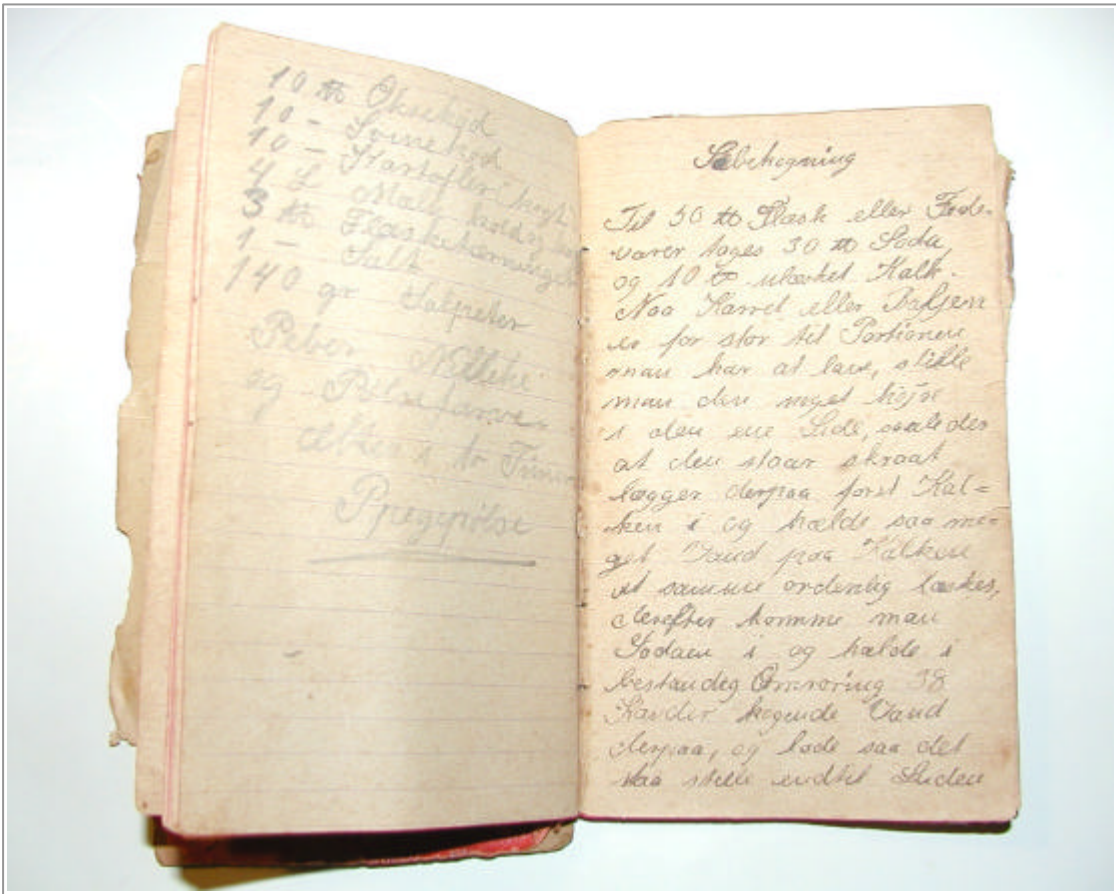 10 ℔ Oksekjød
10 - Svinekød
10 - Kartofler kogt
4 L Mælk kold og
3 ℔ Flæsketærninger
1 - Salt
140 gr Salpeter
Peber Nellike
og Pølsefarve
æltes i to Timer
Spegepølse
Sæbekogning
Til 50 ℔ Flæsk eller Fede-
varer tages 30 ℔ Soda
og 10 ℔ ulæsket Kalk.
Naa Karret eller Baljen
er for stor til Portionen
man har at lave, stille
man den noget højre
i den ene Side, saaledes
at den staar skraat
lægger derpaa først Kal=
ken i og hælde saa me-
get Vand paa Kalken
at samme ordenlig læskes,
derefter komme man
Sodaen i og hælde i
bestandig Omrøring 38
Kander kogende Vand
derpaa, og lade saa det
staa stille indtil Luden